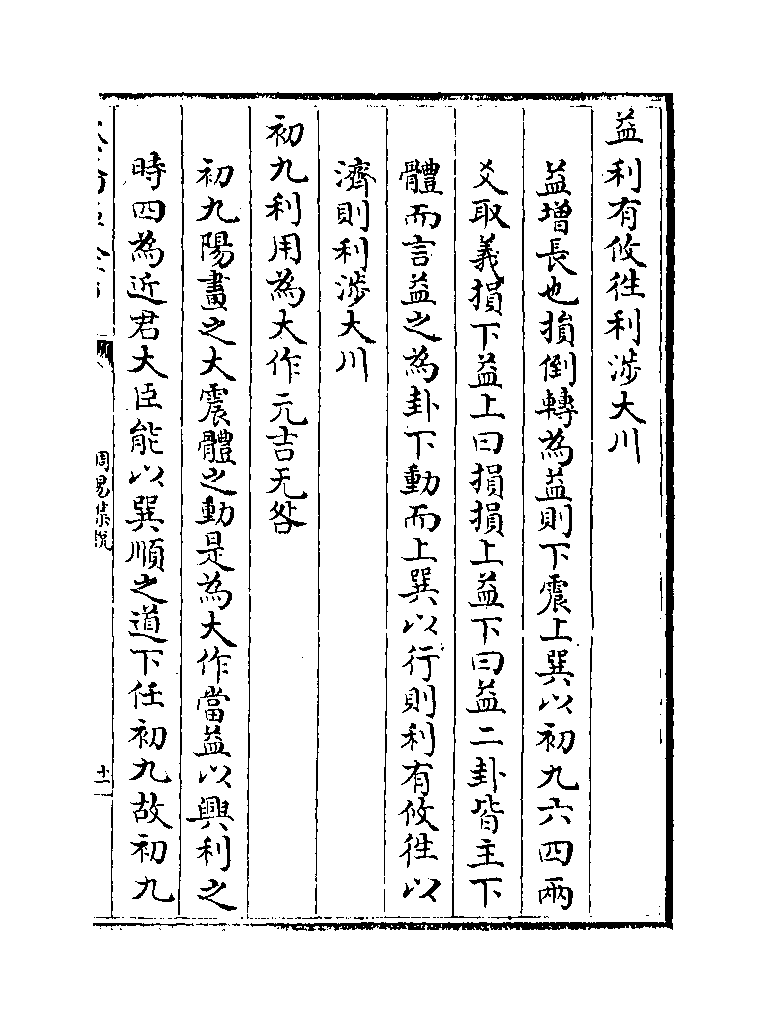 益利有攸徃利渉大川
益増長也損倒轉為益則下震上巽以初九六四兩
爻取義損下益上曰損損上益下曰益二卦皆主下
體而言益之為卦下動而上巽以行則利有攸徃以
濟則利渉大川
初九利用為大作元吉无咎
初九陽畫之大震體之動是為大作當益以興利之
時四為近君大臣能以巽順之道下任初九故初九
周易集說
十一